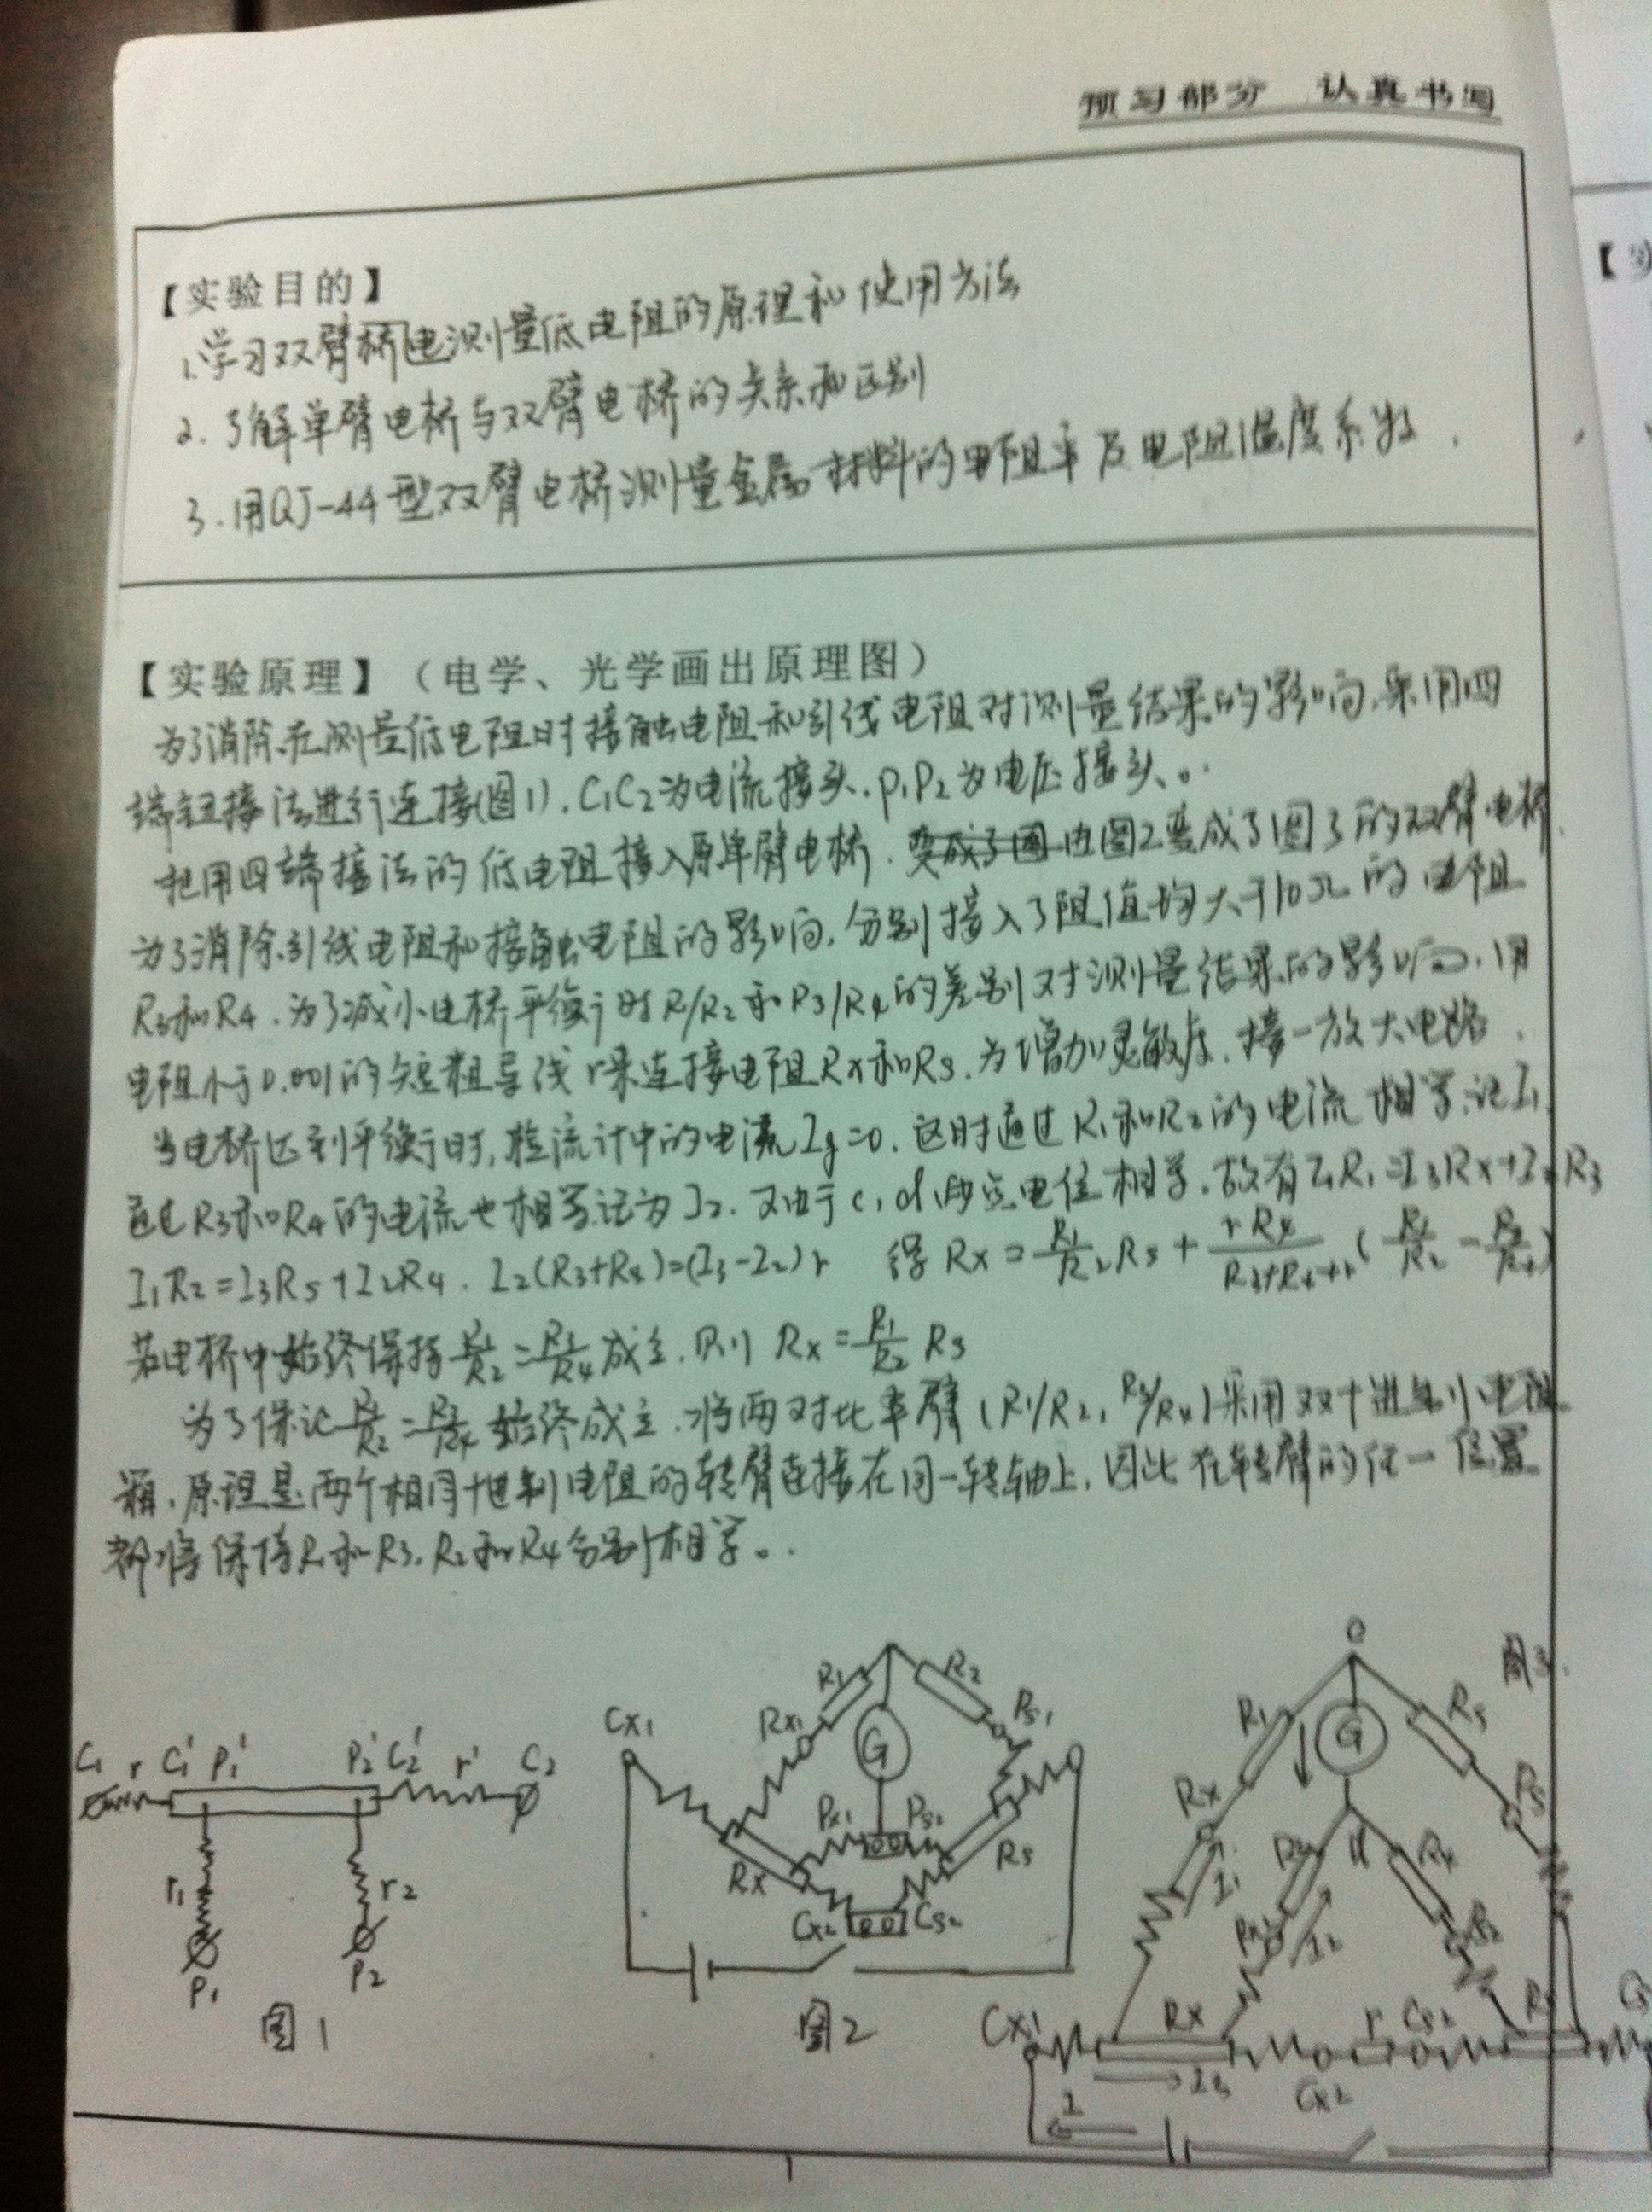 预习部分 认真书写
【实验目的】
1.学习双臂桥电测量低电阻的原理和使用方法
2.了解单臂电桥与双臂电桥的关系和区别
3.用QJ-44型双臂电桥测量金属材料的电阻率及电阻温度系数.
【实验原理】(电学、光学画出原理图)
为了消除在测量低电阻时接触电阻和引线电阻对测量结果的影响,采用四
端钮接法进行连接(图1).C1C2为电流接头.P1P2为电压接头。
把用四端接法的低电阻接入原单臂电桥.由图2变成了图3的双臂电桥.
为了消除引线电阻和接触电阻的影响,分别接入了阻值均大于10Ω的电阻
R3和R4.为了减小电桥平衡时R1/R2和R3/R4的差别对测量结果的影响,用
电阻小于0.001的短粗导线r来连接电阻Rx和Rs.为增加灵敏度,接一放大电路.
当电桥达到平衡时,检流计中的电流Ig=0.这时通过R1和R2的电流相等,记I1,
通过R3和R4的电流也相等记为I2.又由于c,d两点电位相等,故有I1R1=I3Rx+I2R3
I1R2=I3Rs+I2R4. I2(R3+R4)=(I3-I2)r 得 Rx=R1/R2 Rs+rR4/(R3+R4+r)(R1/R2-R3/R4)
若电桥中始终保持R1/R2=R3/R4成立.则 Rx=R1/R2 Rs
为了保证R1/R2=R3/R4始终成立.将两对比率臂(R1/R2,R3/R4)采用双十进制电阻
箱.原理是两个相同十进制电阻的转臂连接在同一转轴上,因此在转臂的任一位置
都将保持R1和R3,R2和R4分别相等。
C1 r C1' P1' P2' C2' r' C2
r1 r2
P1 P2
图1
Cx1 R1 R2
Rx1 G Ps1
Px2 Ps2
Rx Rs
Cx2 Cs2
图2
图3.
R1 G Rs
Rx Ps
I1 R4
I2
Cx1 Rx r Cs2
I3 Cx2
I
1